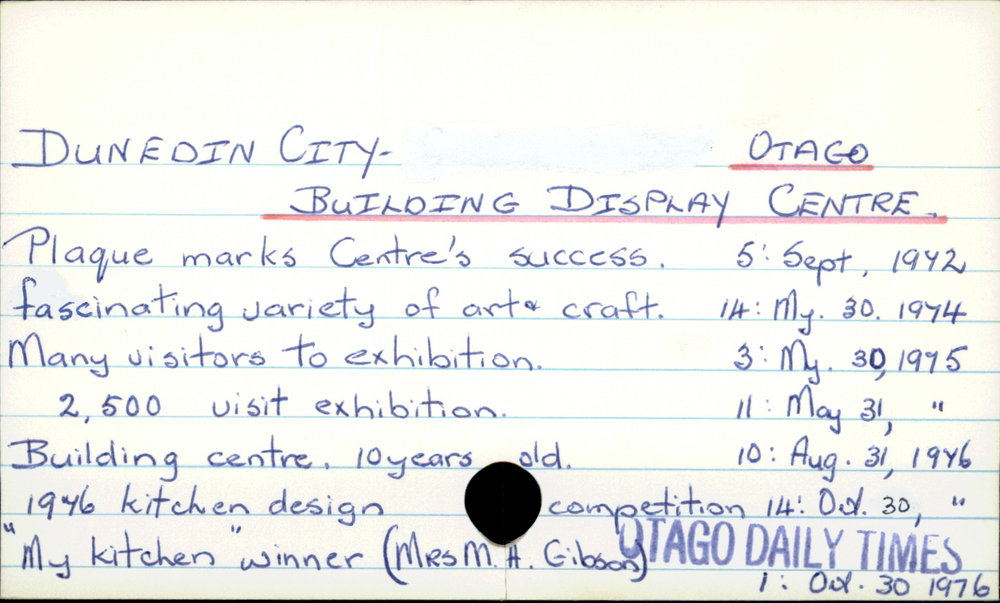 DUNEDIN CITY- OTAGO
BUILDING DISPLAY CENTRE.
Plaque marks Centre's success. 5: Sept, 1972
fascinating variety of art & craft. 14: My. 30. 1974
Many visitors to exhibition. 3: My. 30, 1975
2,500 visit exhibition. 11: May 31, "
Building centre. 10 years old. 10: Aug. 31, 1976
1976 kitchen design competition 14: Oct. 30, "
"My kitchen" winner (MRS M. H. Gibson) OTAGO DAILY TIMES
1: Oct. 30 1976